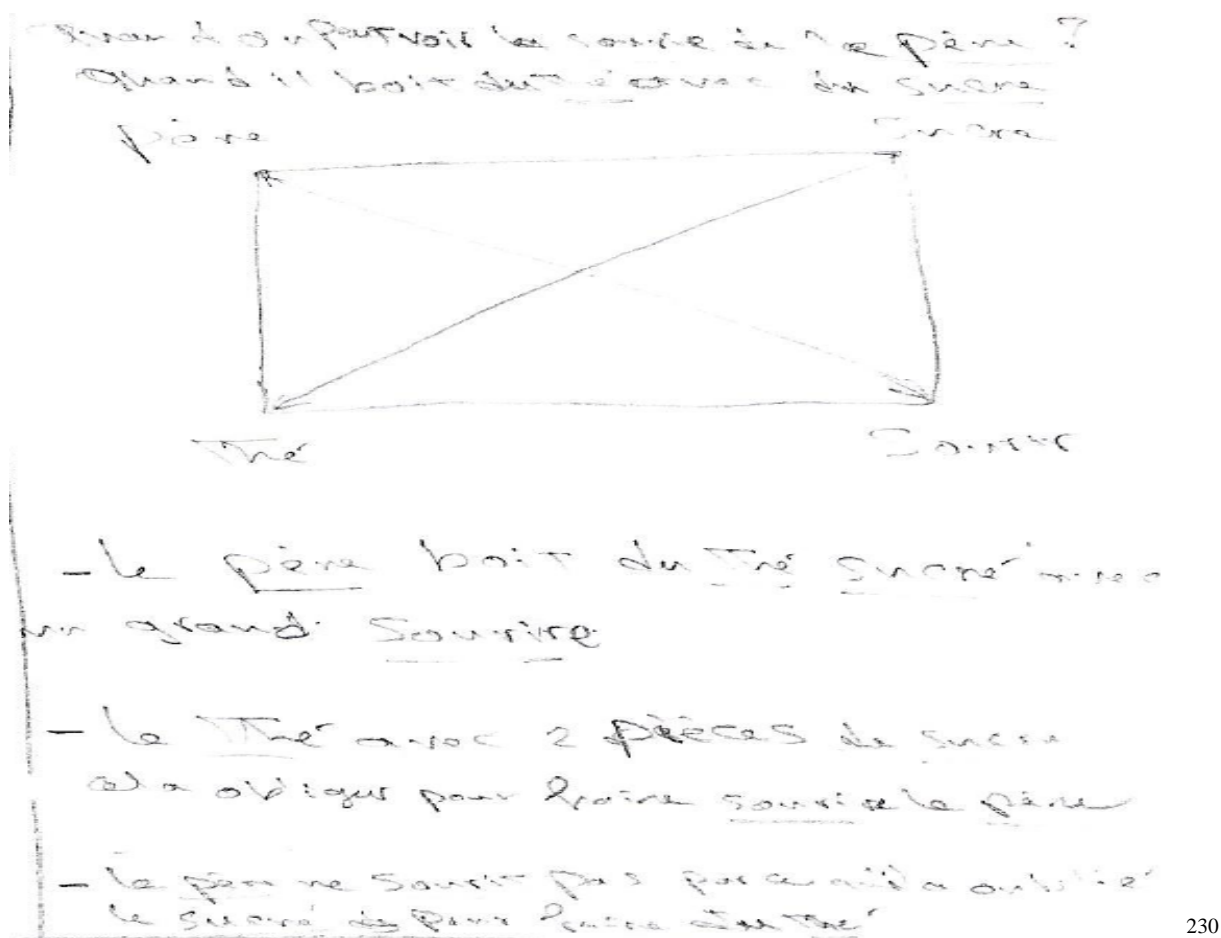 Quand on peut voir le sourire de le père ?
Quand il boit du thé avec du sucre
père Sucre
Thé Sourir
- le père boit du Thé sucré avec
un grand Sourire
- le Thé avec 2 pièces de sucre
obliger pour faire sourire le père
- le père ne sourit pas parce qu'il a oublié
le sucré de pour faire du thé
230